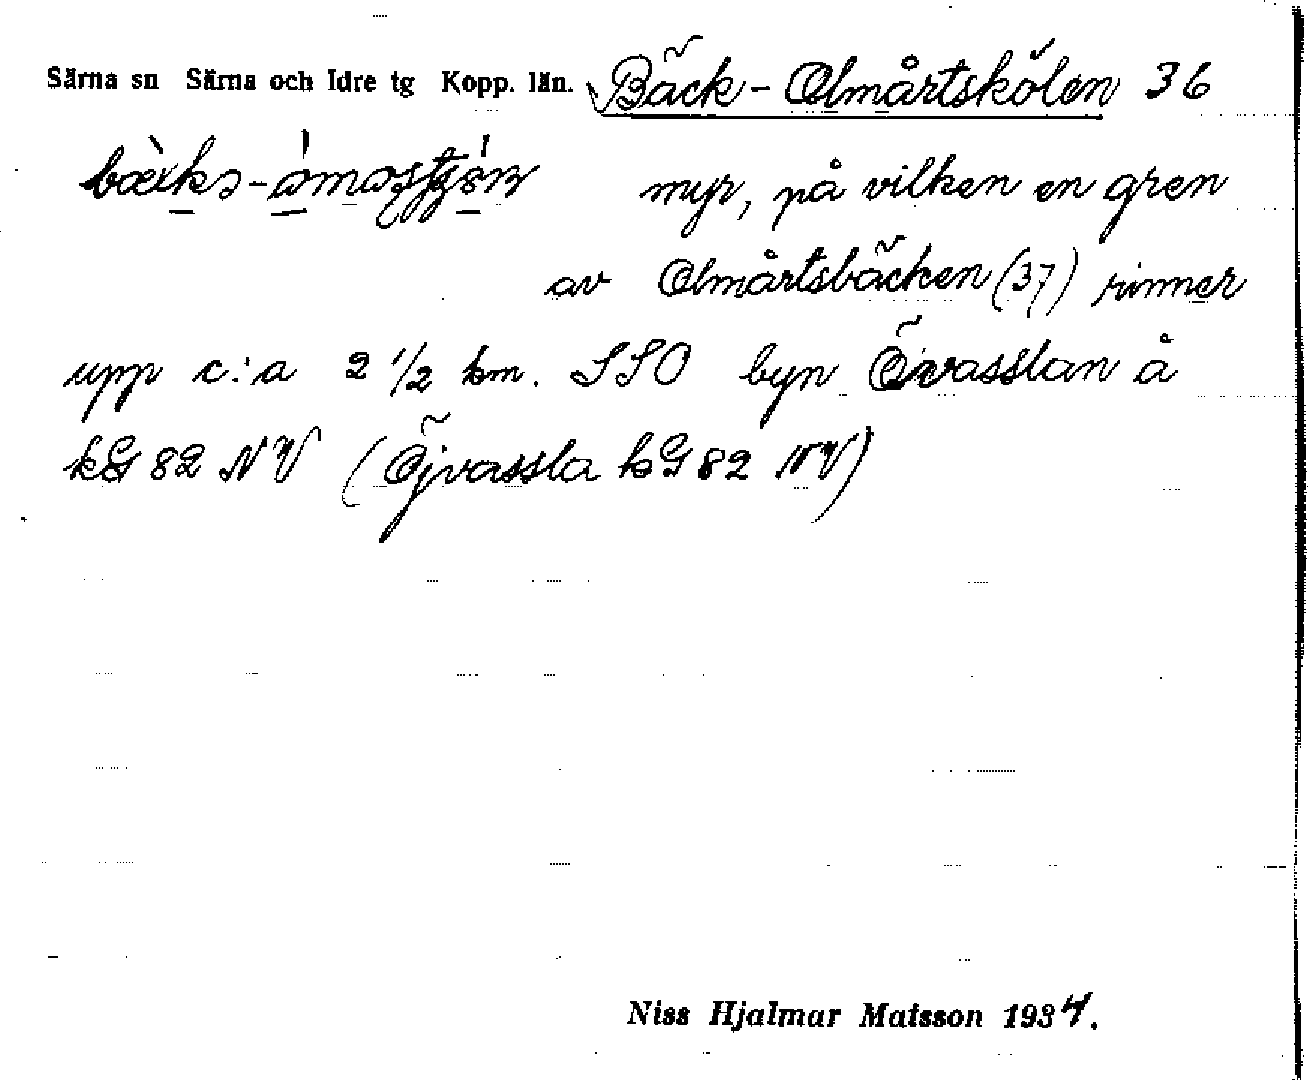 Särna sn Särna och Idre tg Kopp. län. Bäck-Olmårtskölen 36
myr, på vilken en gren
av Olmårtsbäcken (37) rinner
upp c:a 2 1/2 km. SSO byn Övasslan å
kG 82 NV (Öjvassla kG 82 NV)
Niss Hjalmar Matsson 1934.